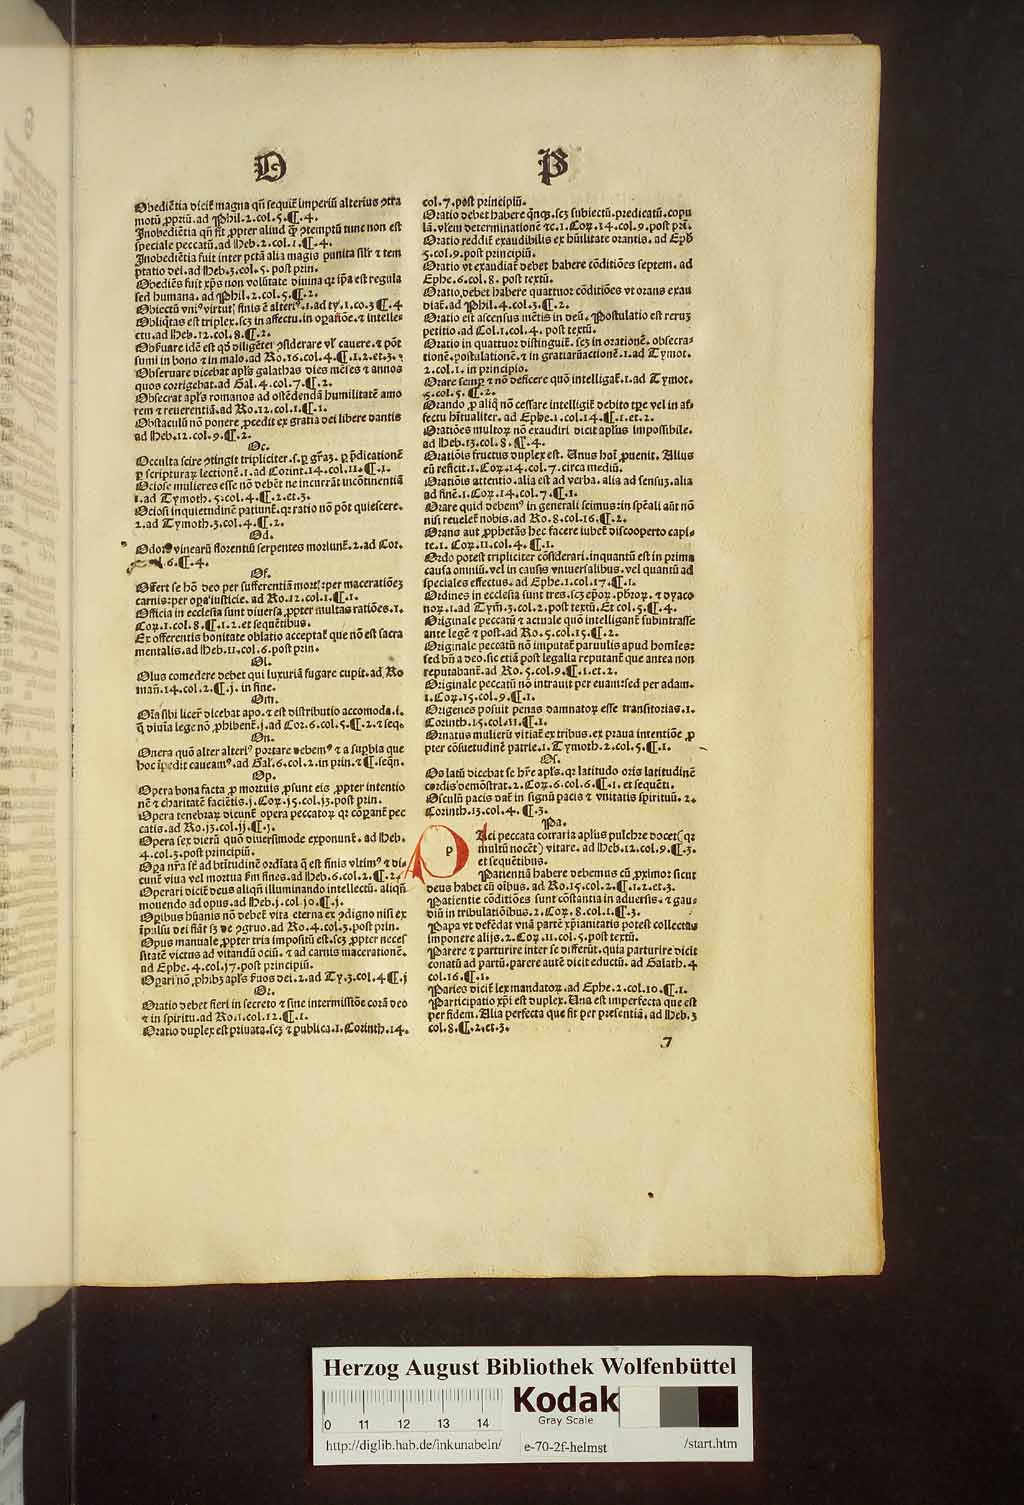 O
P
Obediētia dicit̄ magna qn̄ sequit̄ imperiū alterius ꝯtra
motū ꝓpriū. ad Phil. 2. col. 5. ¶. 4.
Inobediētia qn̄ fit ꝓpter aliud qͣ̄ ꝯtemptū tunc non est
speciale peccatū. ad Heb. 2. col. 1. ¶. 4.
Inobediētia fuit inter pctā alia magis punita silr̄ ⁊ tem
ptatio dei. ad Heb. 3. col. 5. post prin.
Obediēs fuit xp̄s non volūtate diuina qꝛ ip̄a est regula
sed humana. ad Phil. 2. col. 5. ¶. 2.
Obiectū vniꝰ virtut̄ꝭ finis ē alteriꝰ. 1. ad ty. 1. co. 3 ¶. 4
Obliq̄tas est triplex. scꝫ in affectu. in oꝑatiōe. ⁊ intelle-
ctu. ad Heb. 12. col. 8. ¶. 2.
Obẜuare idē est qō diligēter ꝯsiderare vl̓ cauere. ⁊ pōt
sumi in bono ⁊ in malo. ad Ro. 16. col. 4. ¶. 1. 2. et. 3.
Obseruare dicebat apl̓s galathas dies mēses ⁊ annos
quos corrigebat. ad Gal. 4. col. 7. ¶. 2.
Obsecrat apl̓s romanos ad ostēdendā humilitatē amo
rem ⁊ reuerentiā. ad Ro. 12. col. 1. ¶. 1.
Obstaculū nō ponere ꝓcedit ex gratia dei libere dantis
ad Heb. 12. col. 9. ¶. 2.
Oc.
Occulta scire ꝯtingit tripliciter. s. ꝑ gr̄aꝫ. ꝑ p̄dicationē
ꝑ scripturaꝝ lectionē. 1. ad Corint. 14. col. 11. ¶. 1.
Ociose mulieres esse nō debēt ne incurrāt incōtinentiā
1. ad Tymoth. 5. col. 4. ¶. 2. et. 3.
Ociosi inquietudinē patiunt̄. qꝛ ratio nō pōt quiescere.
2. ad Tymoth. 3. col. 4. ¶. 2.
Od.
Odorē vinearū florentiū serpentes moriunt̄. 2. ad Cor.
6. ¶. 4.
Of.
Offert se hō deo per sufferentiā mort̄ꝭ: per maceratiōeꝫ
carnis: per oꝑa iusticie. ad Ro. 12. col. 1. ¶. 1.
Officia in ecclesia sunt diuersa ꝓpter multas ratiōes. 1.
Coꝝ. 1. col. 8. ¶. 1. 2. et sequētibus.
Ex offerentis bonitate oblatio acceptat̄ que nō est sacra
mentalis. ad Heb. 11. col. 6. post prin.
Ol.
Olus comedere debet qui luxuriā fugare cupit. ad Ro
man̄. 14. col. 2. ¶. j. in fine.
Om.
Oīa sibi licer̄ dicebat apo. ⁊ est distributio accomoda. i.
q̄ diuīa lege nō ꝓhibent̄. j. ad Cor. 6. col. 5. ¶. 2. ⁊ seq̄.
On.
Onera quō alter alteriꝰ portare debemꝰ ⁊ a suꝑbia que
hoc īpedit caueamꝰ. ad Gal. 6. col. 2. in prin. ⁊ ¶. seqn̄.
Op.
Opera bona facta ꝓ mortuis ꝓsunt eis ꝓpter intentio
nē ⁊ charitatē faciētis. j. Coꝝ. j5. col. j3. post prin.
Opera tenebraꝝ dicunt̄ opera peccatoꝝ qꝛ cōparēt pec
catis. ad Ro. j3. col. jj. ¶. j.
Opera sex dierū quō diuersimode exponunt̄. ad Heb.
4. col. 3. post principiū.
Oꝑa nr̄a sē ad btītudinē ordīata q̄ est finis vltimꝰ ⁊ di-
cunt̄ viua vel mortua ẜm fines. ad Heb. 6. col. 2. ¶. 2.
Operari dicit̄ deus aliqn̄ illuminando intellectū. aliqn̄
mouendo ad opus. ad Heb. j. col. jo. ¶. j.
Oꝑibus hūanis nō debet̄ vita eterna ex ꝯdigno nisi ex
īpulsu dei fiāt sꝫ de ꝯgruo. ad Ro. 4. col. 3. post prin.
Opus manuale ꝓpter tria impositū est. scꝫ ꝓpter neces
sitatē victus ad vitandū ociū. ⁊ ad carnis macerationē.
ad Ephe. 4. col. j7. post principiū.
Oꝑari nō ꝓhibꝫ apl̓s ẜuos dei. 2. ad Ty. 3. col. 4. ¶. j
Or.
Oratio debet fieri in secreto ⁊ sine intermissiōe corā deo
⁊ in spiritu. ad Ro. 1. col. 12. ¶. 1.
Oratio duplex est priuata. scꝫ ⁊ publica. 1. Corinth. 14.
col. 7. post principiū.
Oratio debet habere qnqꝫ. scꝫ subiectū. predicatū. copu
lā. vl̓em determinationē ⁊c. 1. Coꝝ. 14. col. 9. post pri.
Oratio reddit̄ exaudibilis ex hūilitate orantis. ad Eph
5. col. 9. post principiū.
Oratio vt exaudiat̄ debet habere cōditiōes septem. ad
Ephe. 6. col. 8. post textū.
Oratio. debet habere quattuor cōditiōes vt orans exau
diat̄. ad Phil. 4. col. 3. ¶. 2.
Oratio est ascensus mētis in deū. Postulatio est reruꝫ
petitio. ad Col. 1. col. 4. post textū.
Oratio in quattuor distinguit̄. scꝫ in orationē. obsecra-
tionē. postulationē. ⁊ in gratiarūactionē. 1. ad Tymot.
2. col. 1. in principio.
Orare semꝑ ⁊ nō deficere quō intelligat̄. 1. ad Tymot.
5. col. 5. ¶. 2.
Orando ꝓ aliq̄ nō cessare intelligit̄ debito tꝑe vel in af-
fectu hītualiter. ad Ephe. 1. col. 14. ¶. 1. et. 2.
Oratiōes multoꝝ nō exaudiri dicit apl̓us impossibile.
ad Heb. 13. col. 8. ¶. 4.
Oratiōis fructus duplex est. Unus hoī ꝓuenit. Alius
eū reficit. 1. Coꝝ. 14. col. 7. circa mediū.
Oratiōis attentio. alia est ad verba. alia ad sensuꝫ. alia
ad finē. 1. Coꝝ. 14. col. 7. ¶. 1.
Orare quid debemꝰ in generali scimus: in sp̄eali aūt nō
nisi reuelet̄ nobis. ad Ro. 8. col. 16. ¶. 2.
Orans aut ꝓphetās hec facere iubet̄ discooperto capi-
te. 1. Coꝝ. 11. col. 4. ¶. 1.
Ordo potest tripliciter cōsiderari. inquantū est in prima
causa omniū. vel in causis vniuersalibus. vel quantū ad
speciales effectus. ad Ephe. 1. col. 17. ¶. 1.
Ordines in ecclesia sunt tres. scꝫ ep̄oꝝ. pb̄roꝝ. ⁊ dyaco
noꝝ. 1. ad Tym̄. 3. col. 2. post textū. Et col. 5. ¶. 4.
Originale peccatū ⁊ actuale quō intelligant̄ subintrasse
ante legē ⁊ post. ad Ro. 5. col. 15. ¶. 2.
Originale peccatū nō imputat̄ paruulis apud homies:
sed bn̄ a deo. sic etiā post legalia reputant̄ que antea non
reputabant̄. ad Ro. 5. col. 9. ¶. 1. et. 2.
Originale peccatū nō intrauit per euam: sed per adam.
1. Coꝝ. 15. col. 9. ¶. 1.
Origenes posuit penas damnatoꝝ esse transitorias. 1.
Corinth. 15. col. 11. ¶. 1.
Ornatus mulierū vitiat̄ ex tribus. ex praua intentiōe ꝓ
pter cōsuetudinē patrie. 1. Tymoth. 2. col. 5. ¶. 1.
Os.
Os latū dicebat se hr̄e apl̓s. qꝛ latitudo oris latitudinē
cordis demōstrat. 2. Coꝝ. 6. col. 6. ¶. 1. et sequēti.
Osculū pacis dat̄ in signū pacis ⁊ vnitatis spirituū. 2.
Corinth. 13. col. 4. ¶. 3.
Pa.
P
Aci peccata cōtraria aplius pulchre docet (qꝛ
multū nocēt) vitare. ad Heb. 12. col. 9. ¶. 3.
et sequētibus.
Patientiā habere debemus cū ꝓximo: sicut
deus habet cū oībus. ad Ro. 15. col. 2. ¶. 1. 2. et. 3.
Patientie cōditiōes sunt cōstantia in aduersis. ⁊ gau-
diū in tribulatiōibus. 2. Coꝝ. 8. col. 1. ¶. 3.
Papa vt defēdat vnā partē xp̄ianitatis potest collectas
imponere alijs. 2. Coꝝ. 11. col. 5. post textū.
Parere ⁊ parturire inter se differūt. quia parturire dicit
conatū ad partū. parere autē dicit eductū. ad Galath. 4
col. 16. ¶. 1.
Paries dicit̄ lex mandatoꝝ. ad Ephe. 2. col. 10. ¶. 1.
Participatio xp̄i est duplex. Una est imperfecta que est
per fidem. Alia perfecta que fit per presentiā. ad Heb. 3
col. 8. ¶. 2. et. 3.
7
Herzog August Bibliothek Wolfenbüttel
0 11 12 13 14
Kodak
Gray Scale
http://diglib.hab.de/inkunabeln/ e-70-2f-helmst /start.htm